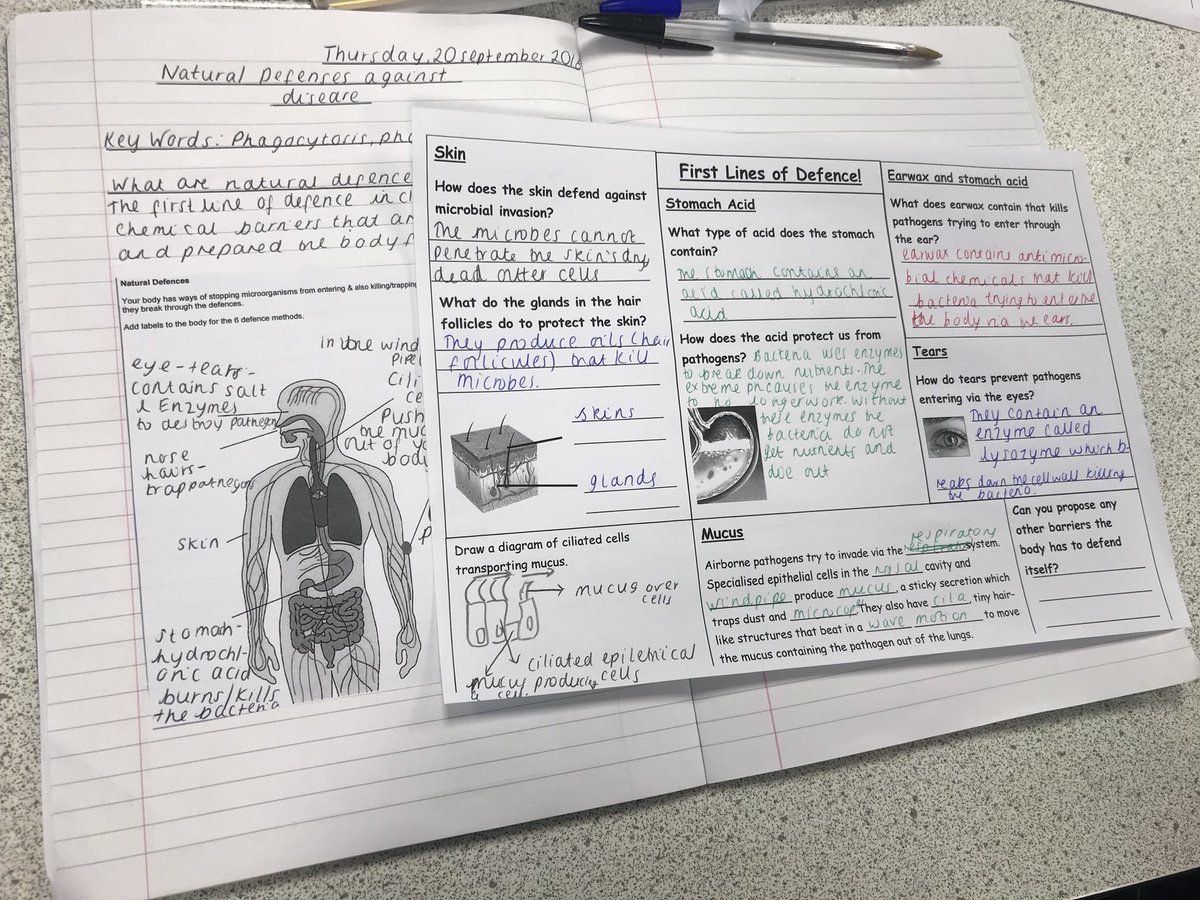 Thursday, 20 september 201
Natural Defenses against
disease
Key Words: Phagocytosis, pha
What are natural defence
The first line of defence in cl
chemical barriers that ar
and prepared the body f
Natural Defences
Your body has ways of stopping microorganisms from entering & also killing/trapping
they break through the defences.
Add labels to the body for the 6 defence methods.
eye - tears -
contains salt
& Enzymes
to destroy pathogens
nose
hairs -
trap pathogens
skin
stomach -
hydrochl-
oric acid
burns/kills
the bacteria
in the wind
pipe
cili
ce
push
the muc
out of yo
body
p
Skin
How does the skin defend against
microbial invasion?
The microbes cannot
penetrate the skin's dry
dead outer cells
What do the glands in the hair
follicles do to protect the skin?
They produce oils (hair
follicules) that kill
microbes.
skins
glands
Draw a diagram of ciliated cells
transporting mucus.
mucus over
cells
ciliated epilethical
cells
mucus producing
cell
First Lines of Defence!
Stomach Acid
What type of acid does the stomach
contain?
The stomach contains an
acid called hydrochloric
acid
How does the acid protect us from
pathogens? Bacteria uses enzymes
to break down nutrients. The
extreme ph causes the enzyme
to no longer work. without
these enzymes the
bacteria do not
get nutrients and
die out
Mucus
respiratory
Airborne pathogens try to invade via the system.
Specialised epithelial cells in the nasal cavity and
windpipe produce mucus, a sticky secretion which
traps dust and microbes. They also have cila, tiny hair-
like structures that beat in a wave motion to move
the mucus containing the pathogen out of the lungs.
Earwax and stomach acid
What does earwax contain that kills
pathogens trying to enter through
the ear?
earwax contains antimicro-
bial chemicals that kill
bacteria trying to enter
the body via the ears.
Tears
How do tears prevent pathogens
entering via the eyes?
They contain an
enzyme called
lysozyme which b-
reaks down the cell wall killing
the bacteria.
Can you propose any
other barriers the
body has to defend
itself?